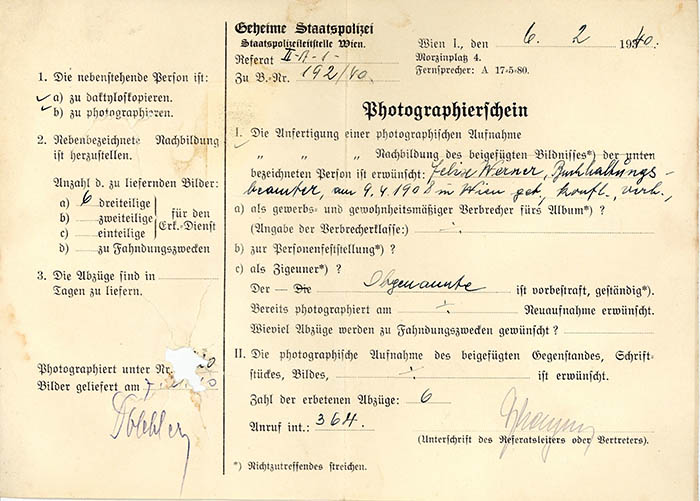 Geheime Staatspolizei
Staatspolizeileitstelle Wien.
Referat II-A-1-
Zu B.-Nr. 192/40.
Wien I., den 6. 2 1940.
Morzinplatz 4.
Fernsprecher: A 17-5-80.
1. Die nebenstehende Person ist:
a) zu daktyloskopieren.
b) zu photographieren.
2. Nebenbezeichnete Nachbildung
ist herzustellen.
Anzahl d. zu liefernden Bilder:
a) 6 dreiteilige
b) zweiteilige
c) einteilige
für den
Erk.-Dienst
d) zu Fahndungszwecken
3. Die Abzüge sind in
Tagen zu liefern.
Photographiert unter Nr.
Bilder geliefert am
Photographierschein
I. Die Anfertigung einer photographischen Aufnahme
" " " Nachbildung des beigefügten Bildnisses*) der unten
bezeichneten Person ist erwünscht: Felix Werner, Buchhaltungs-
beamter, am 9.4.1908 in Wien geb., konfl., verh.,
a) als gewerbs- und gewohnheitsmäßiger Verbrecher fürs Album*) ?
(Angabe der Verbrecherklasse:) ÷
b) zur Personenfeststellung*) ?
c) als Zigeuner*) ?
Der — Die Obgenannte ist vorbestraft, geständig*).
Bereits photographiert am ÷ Neuaufnahme erwünscht.
Wieviel Abzüge werden zu Fahndungszwecken gewünscht ?
II. Die photographische Aufnahme des beigefügten Gegenstandes, Schrift-
stückes, Bildes, ÷ ist erwünscht.
Zahl der erbetenen Abzüge: 6
Anruf int.: 364.
(Unterschrift des Referatsleiters oder Vertreters).
*) Nichtzutreffendes streichen.